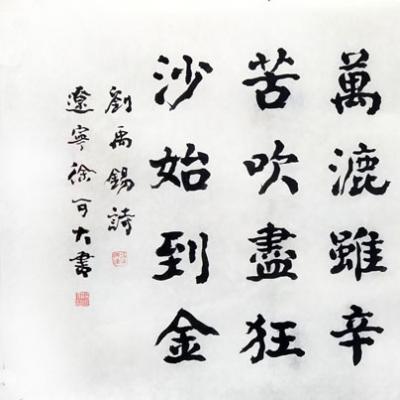 萬漉雖辛
苦吹盡狂
沙始到金
劉禹錫詩
遼寧徐可大書